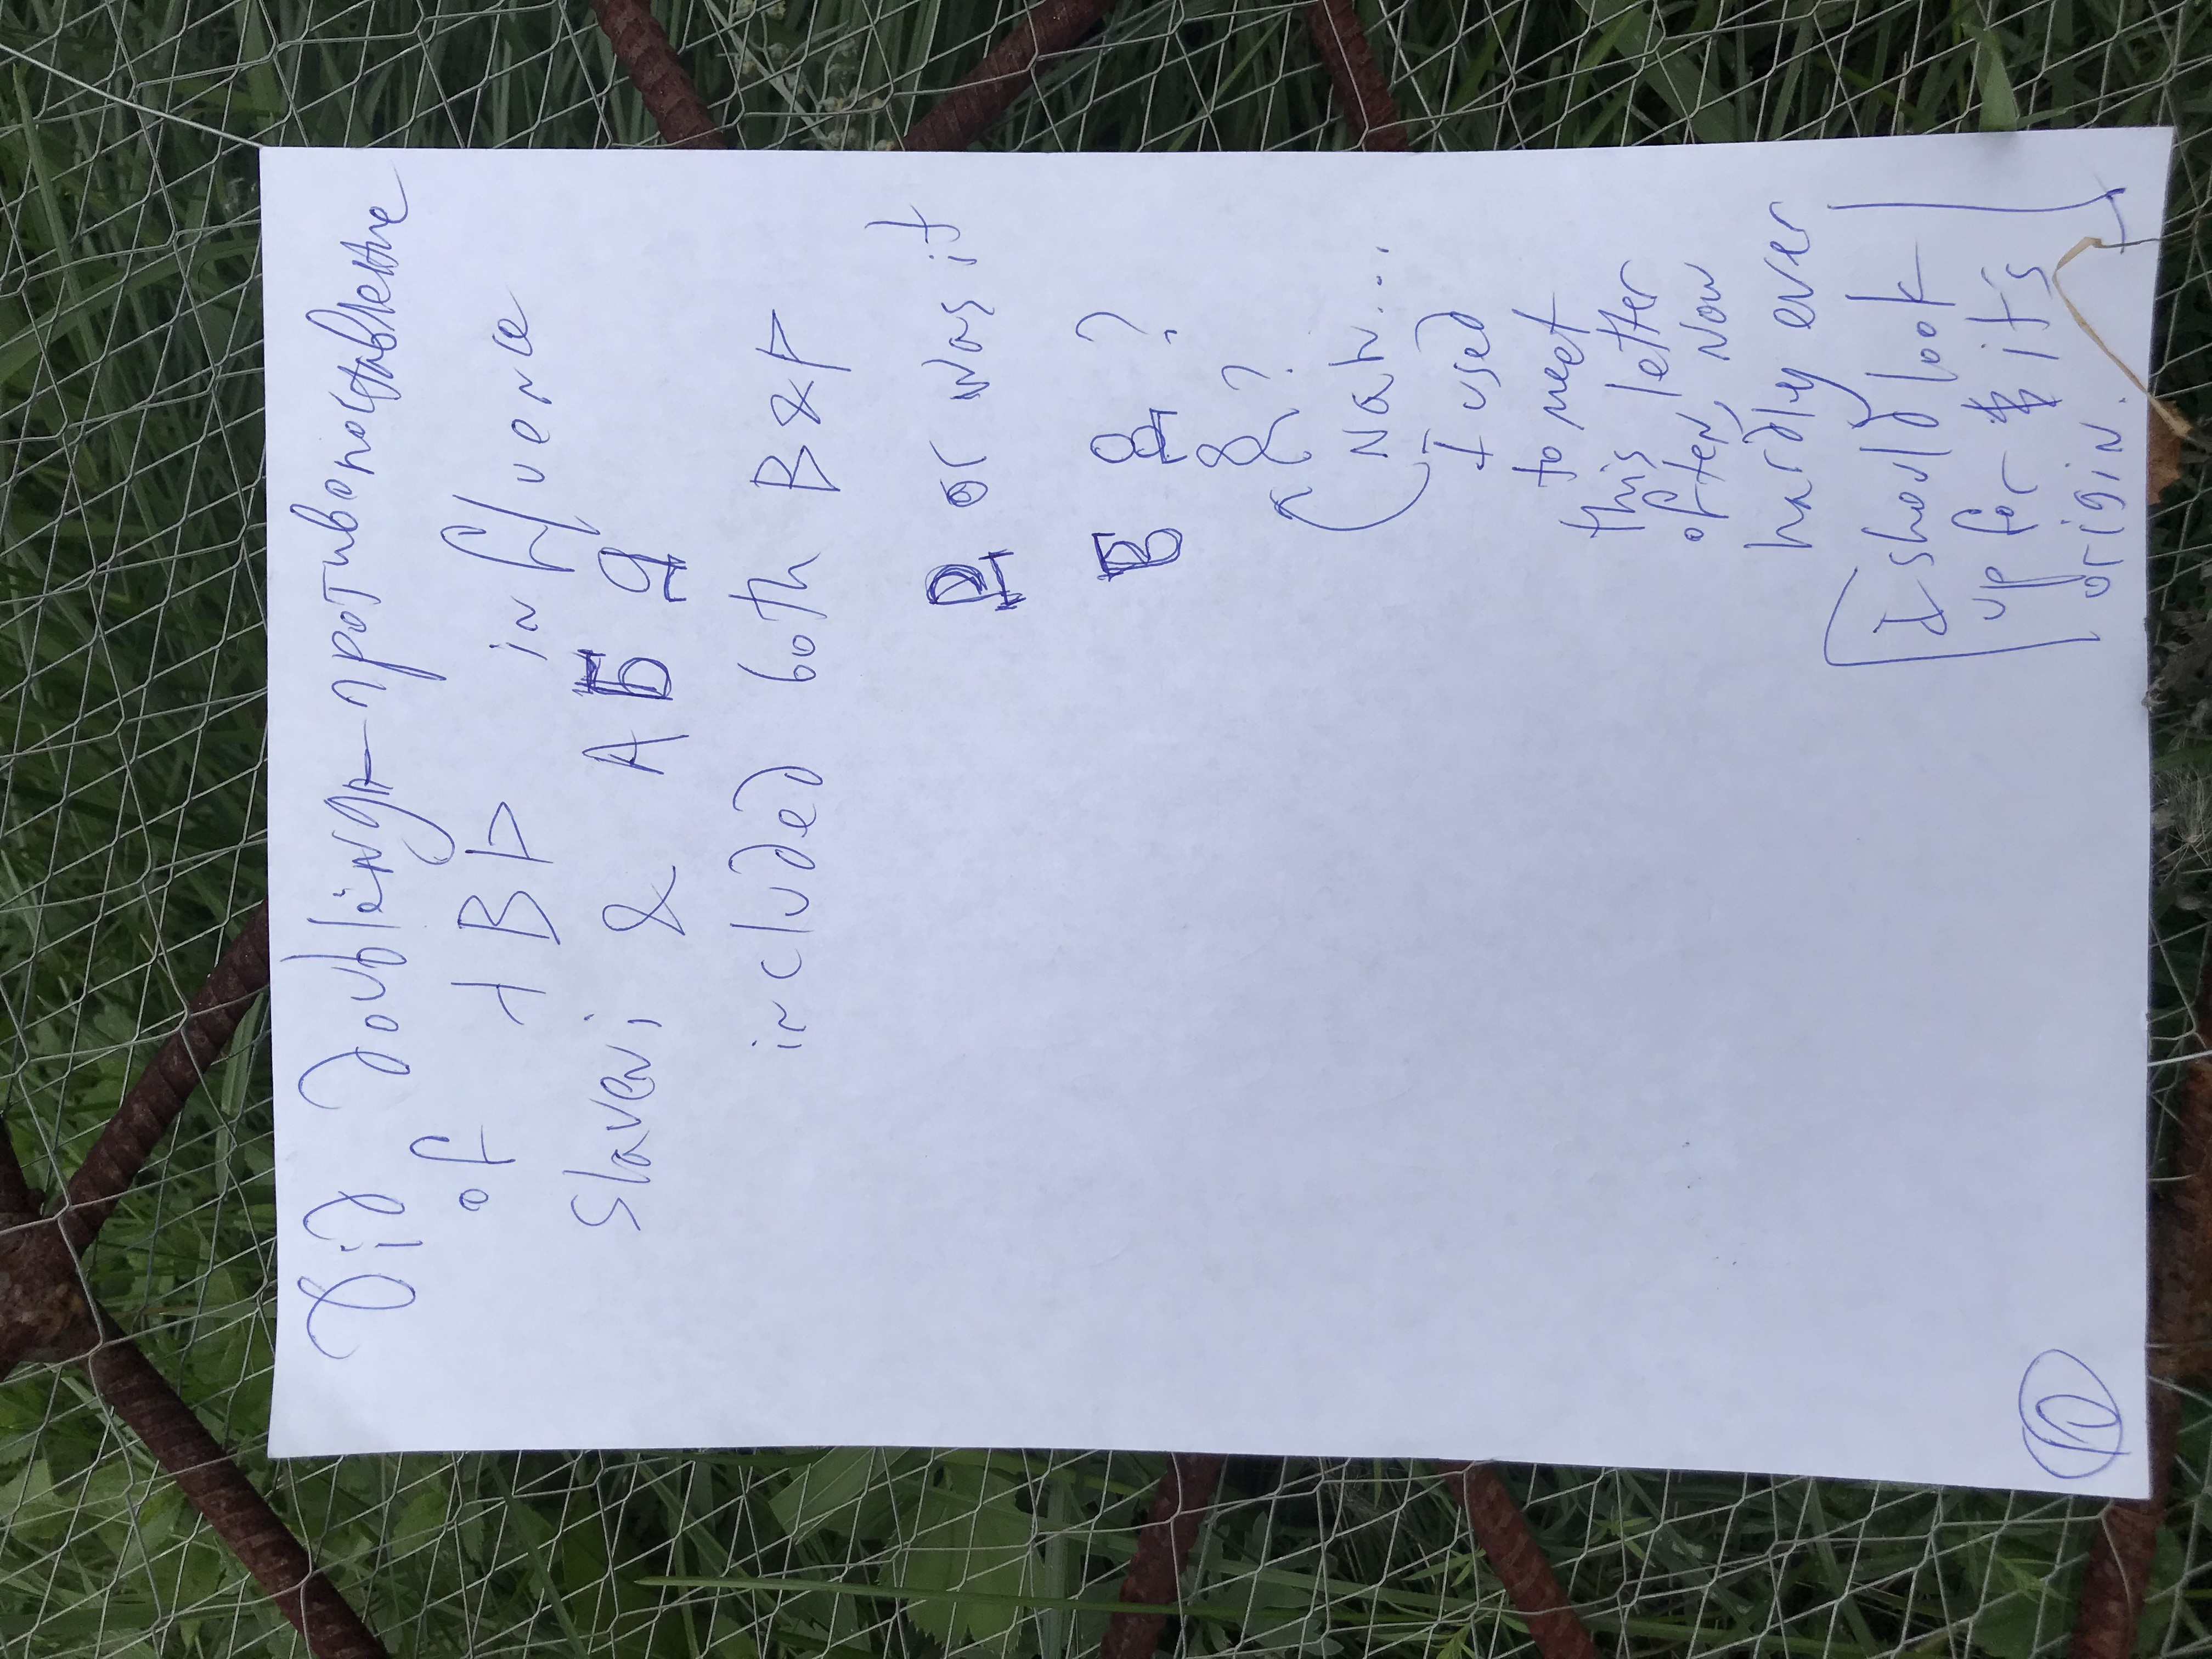 Did doubling-противопоставление
of ⊣ B Þ influence
Slaveni & А Б д
included both B & Þ
or was it
Б ?
?
Nah...
I used
to meet
this letter
often, now
hardly ever
I should look
up for it's
origin.
10